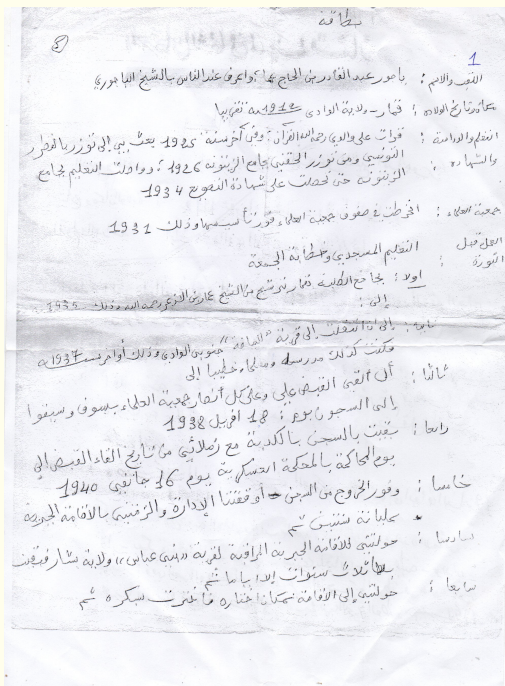 بطاقة
1
اللقب والاسم : باجور عبد القادر بن الحاج عمار وأعرف عند الناس بالشيخ الباجوري
مكان وتاريخ الولادة : قمار - ولاية الوادي 1912 تقريبا
التعلم والدراسة : قرأت على والدي رحمه الله القرآن وفي آخر سنة 1925 بعث بي إلى توزر بالقطر
والشهادة : التونسي ومن توزر إلتحقت بجامع الزيتونة 1926 وواصلت التعليم بجامع
الزيتونة حتى تحصلت على شهادة التطويع 1934
جمعية العلماء : انخرطت في صفوف جمعية العلماء فور تأسيسها وذلك 1931
العمل قبل
الثورة : التعليم المسجدي وخطابة الجمعة
أولا : بجامع الطلبة قمار بترشيح من الشيخ عمار بن الأزعر رحمه الله وذلك 1935
إلى :
ثانيا : إلى أن انتقلت إلى قرية جنوبي الوادي وذلك أواخر سنة 1937
فكنت كذلك مدرسا ومعلما وخطيبا إلى
ثالثا : أن ألقي القبض علي وعلى كل أنصار جمعية العلماء بسوف وسيقوا
إلى السجون يوم : 18 افريل 1938
رابعا : بقيت بالسجن بالكدية مع زملائي من تاريخ إلقاء القبض إلى
يوم المحاكمة بالمحكمة العسكرية يوم 16 جانفي 1940
خامسا : وفور الخروج من السجن أوقفتنا الإدارة والزمتني بالاقامة الجبرية
سنتين ثم
سادسا : حولتني للاقامة الجبرية المراقبة لقرية «بني عباس» ولاية بشار فبقيت
ثلاث سنوات إلا أياما ثم
سابعا : حولتني إلى الاقامة بمكان أختاره فاخترت بسكرة ثم